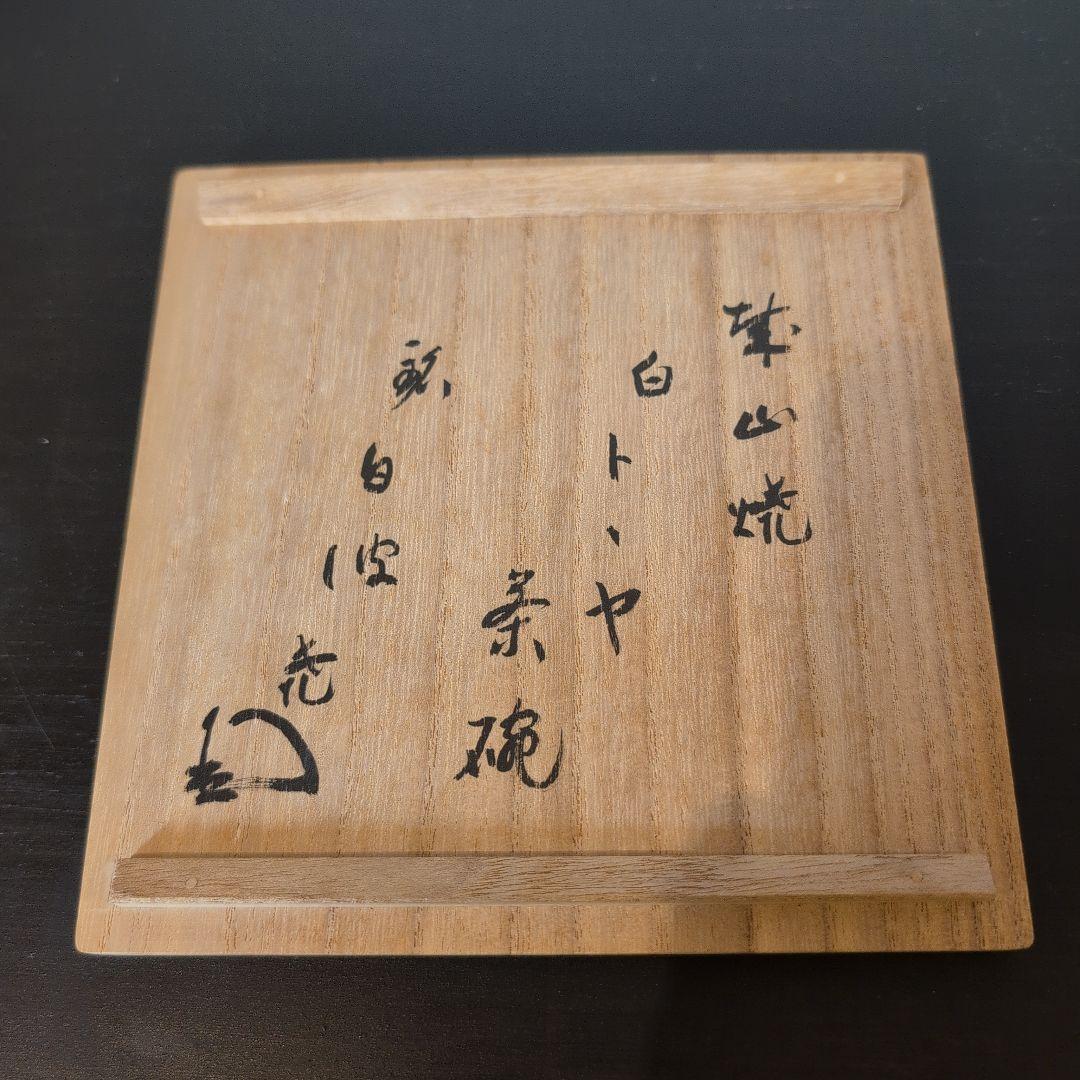 楽山焼
白トヽヤ
茶碗
銘
白波
尭